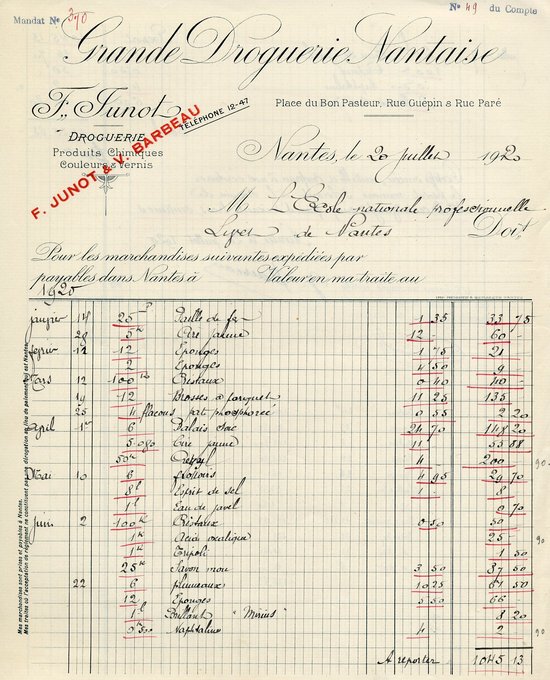 Mandat No 370
No 49 du Compte
Grande Droguerie Nantaise
F. Junot
DROGUERIE
Produits Chimiques
Couleurs & Vernis
F. JUNOT & V. BARBEAU
TÉLÉPHONE 12-47
Place du Bon Pasteur, Rue Guépin & Rue Paré
Nantes, le 20 juillet 1920
M L'Ecole nationale professionnelle
Livet de Nantes Doit
Pour les marchandises suivantes expédiées par
payables dans Nantes à Valeur en ma traite au
1920
janvier 14 25 Paille de fer 1 35 33 75
29 5k Cire jaune 12 60 -
février 12 Eponges 1 75 21
2 Eponges 4 50 9
Mars 12 100k Cristaux 0 40 40 -
19 12 Brosses à parquet 11 25 135
25 4 flacons pat phosphorée 0 55 2 20
Avril 1er 6 Balais sac 24 70 148 20
5 070 Cire jaune 11 55 88
50k 4 200
Mai 10 6 4 95 29 70
8l Esprit de sel 1 8
1l Eau de javel 0 70
Juin 2 100k Cristaux 0 50 50
1k Acide oxalique 25 -
1k Tripoli 1 50
25k Savon mou 3 50 87 50
22 6 plumeaux 10 25 61 50
12 Eponges 5 50 66
1l Brillant "Mirius" 8 20
0k500 Naphtaline 4 2
A reporter 1045 13
Mes marchandises sont prises et payables à Nantes.
Mes traites ou l'acceptation de règlement ne constituent pas une dérogation au lieu de paiement qui est Nantes.